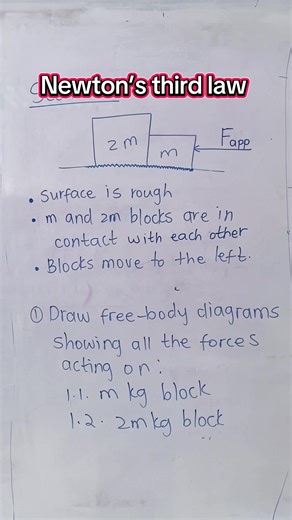 Newton's third law
2m
m
Fapp
• Surface is rough
• m and 2m blocks are in
contact with each other
• Blocks move to the left.
① Draw free-body diagrams
showing all the forces
acting on:
1.1. m kg block
1.2. 2m kg block